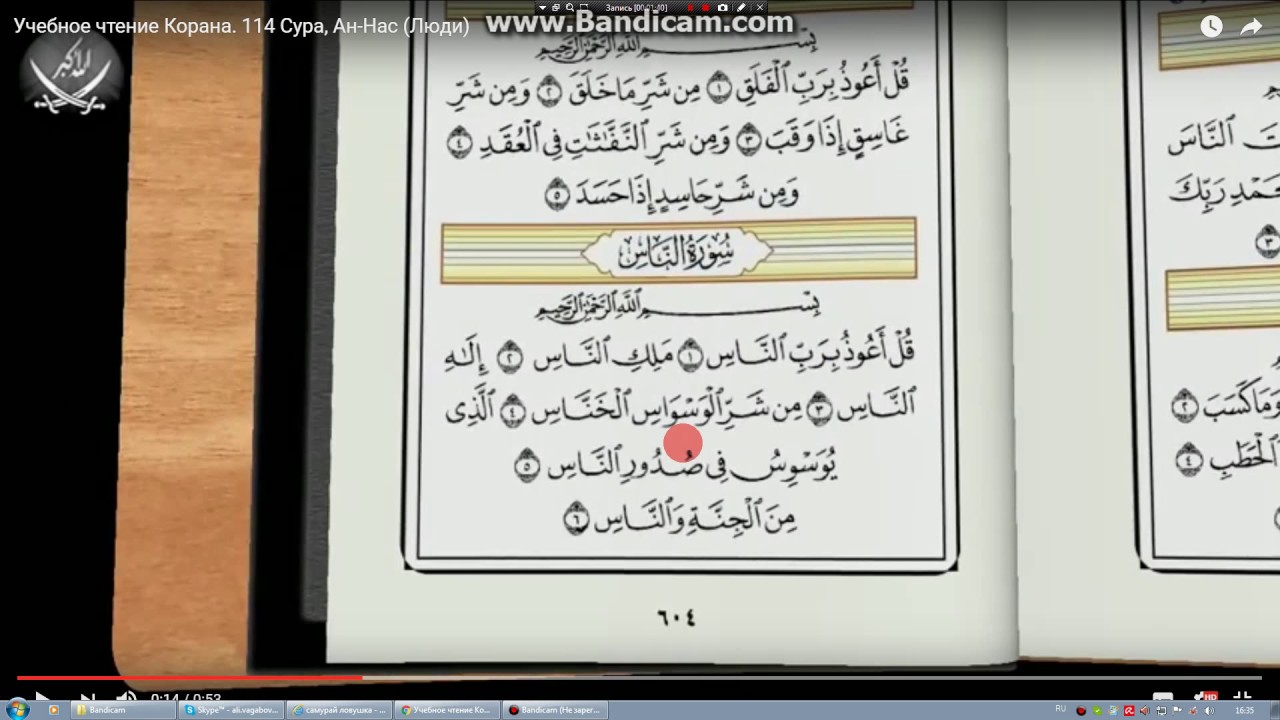 Запись [00:01:10]
www.Bandicam.com
Учебное чтение Корана. 114 Сура, Ан-Нас (Люди)
الله اكبر
بِسْمِ اللَّهِ الرَّحْمَٰنِ الرَّحِيمِ
قُلْ أَعُوذُ بِرَبِّ ٱلْفَلَقِ ١ مِن شَرِّ مَا خَلَقَ ٢ وَمِن شَرِّ
غَاسِقٍ إِذَا وَقَبَ ٣ وَمِن شَرِّ ٱلنَّفَّٰثَٰتِ فِى ٱلْعُقَدِ ٤
وَمِن شَرِّ حَاسِدٍ إِذَا حَسَدَ ٥
سُورَةُ النَّاسِ
بِسْمِ اللَّهِ الرَّحْمَٰنِ الرَّحِيمِ
قُلْ أَعُوذُ بِرَبِّ ٱلنَّاسِ ١ مَلِكِ ٱلنَّاسِ ٢ إِلَٰهِ
ٱلنَّاسِ ٣ مِن شَرِّ ٱلْوَسْوَاسِ ٱلْخَنَّاسِ ٤ ٱلَّذِى
يُوَسْوِسُ فِى صُدُورِ ٱلنَّاسِ ٥
مِنَ ٱلْجِنَّةِ وَٱلنَّاسِ ٦
٦٠٤
ٱلنَّاسَ
رَبِّكَ
٣
وَمَا كَسَبَ ٢
ٱلْحَطَبِ ٤
0:14 / 0:53
HD
Bandicam
Skype™ - ali.vagabov...
самурай ловушка - ...
Учебное чтение Ко...
Bandicam (Не зарег...
RU
16:35